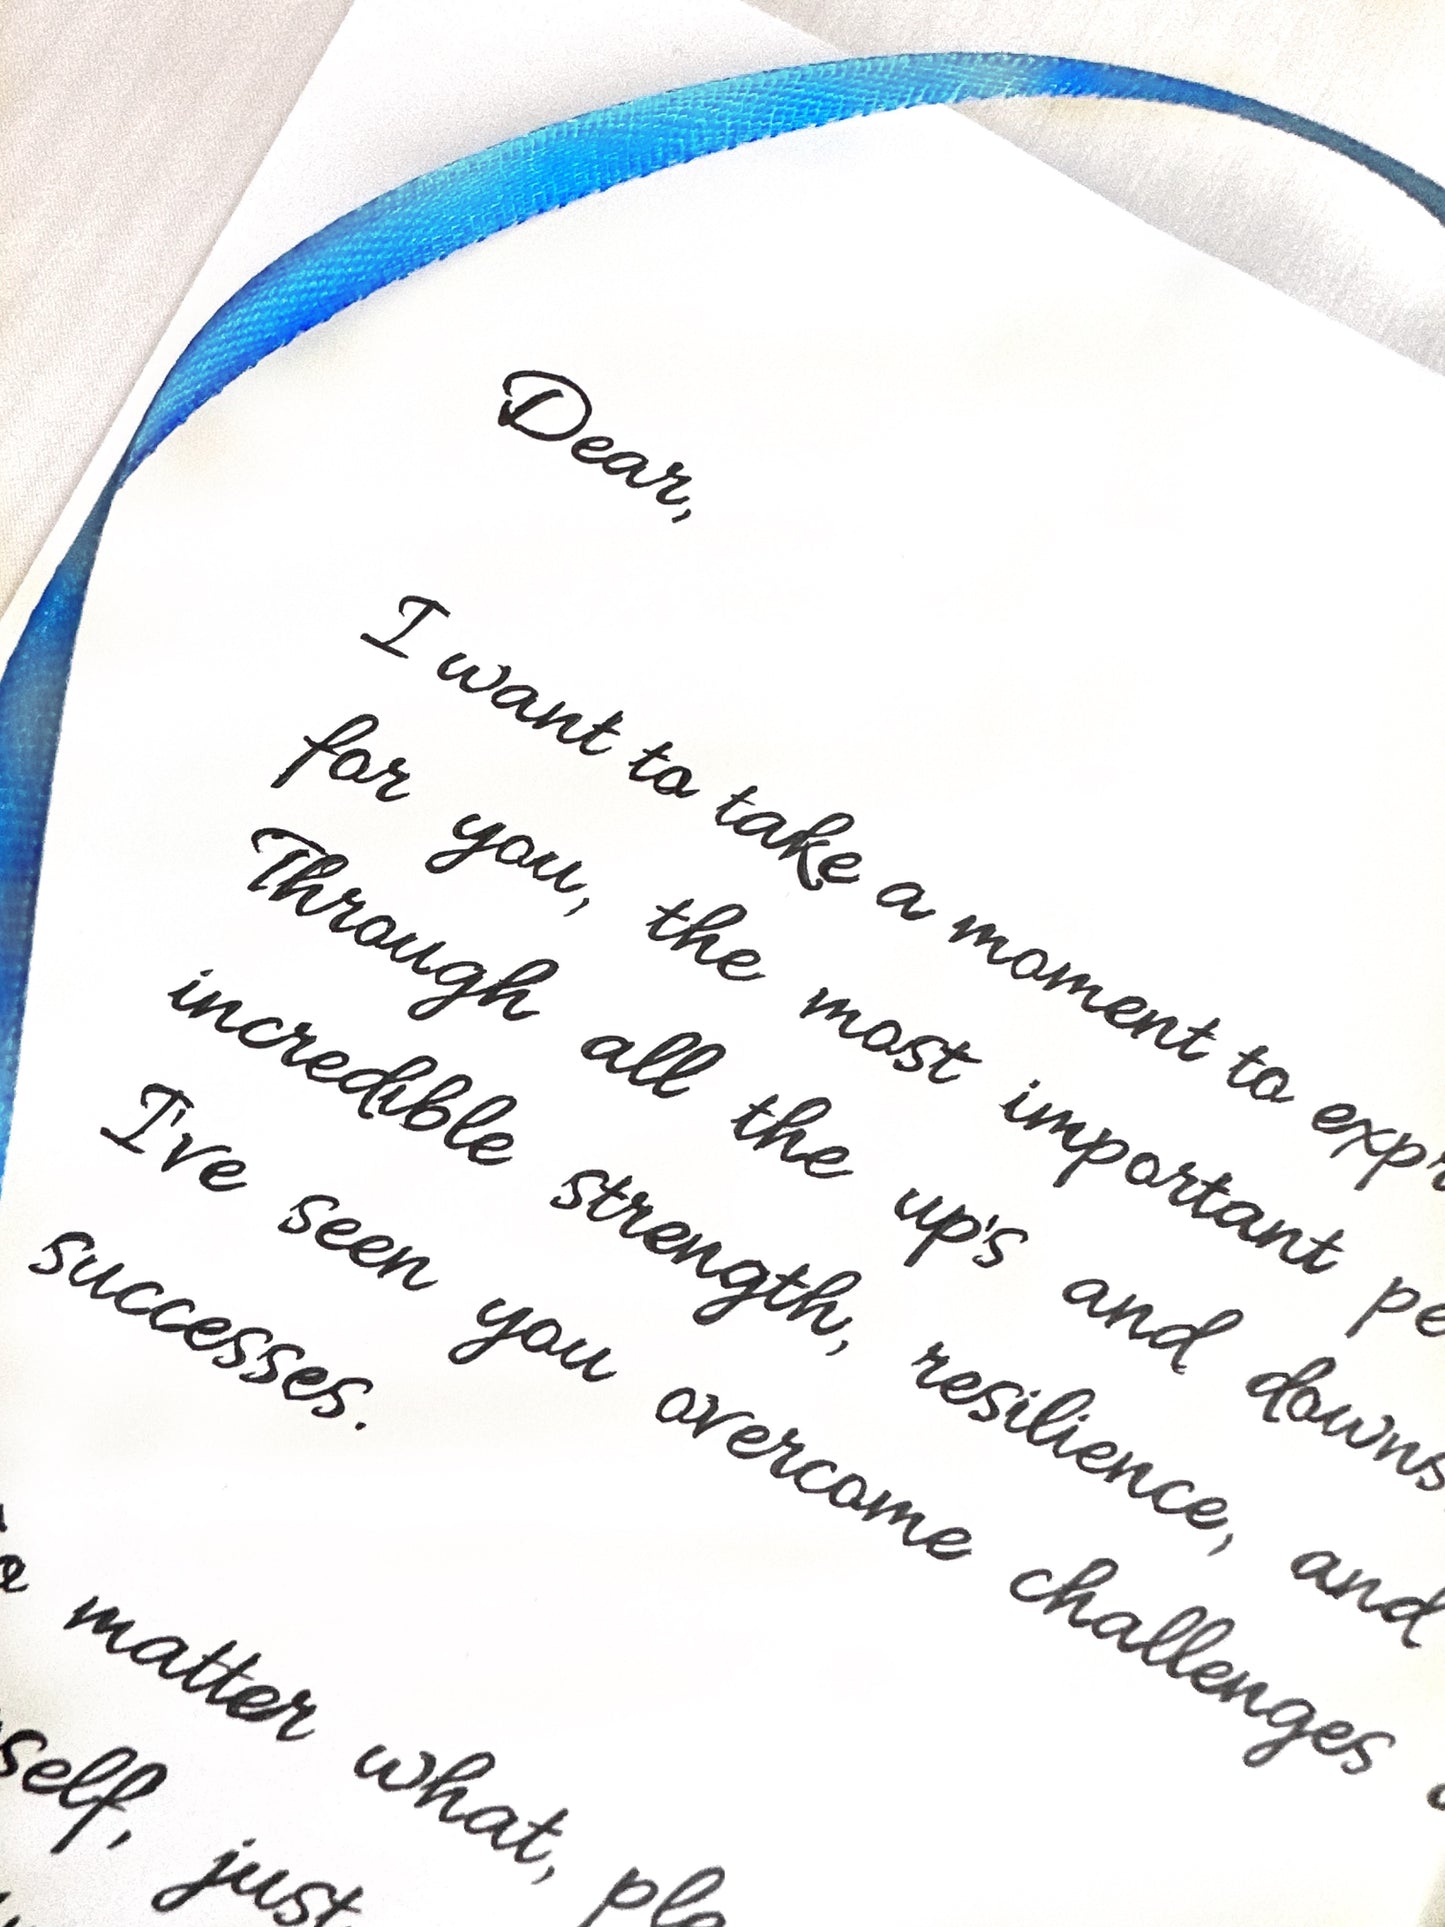 Dear,
I want to take a moment to expr
for you, the most important pe
Through all the up's and downs
incredible strength, resilience, and
I've seen you overcome challenges
successes.
matter what, pla
self, just